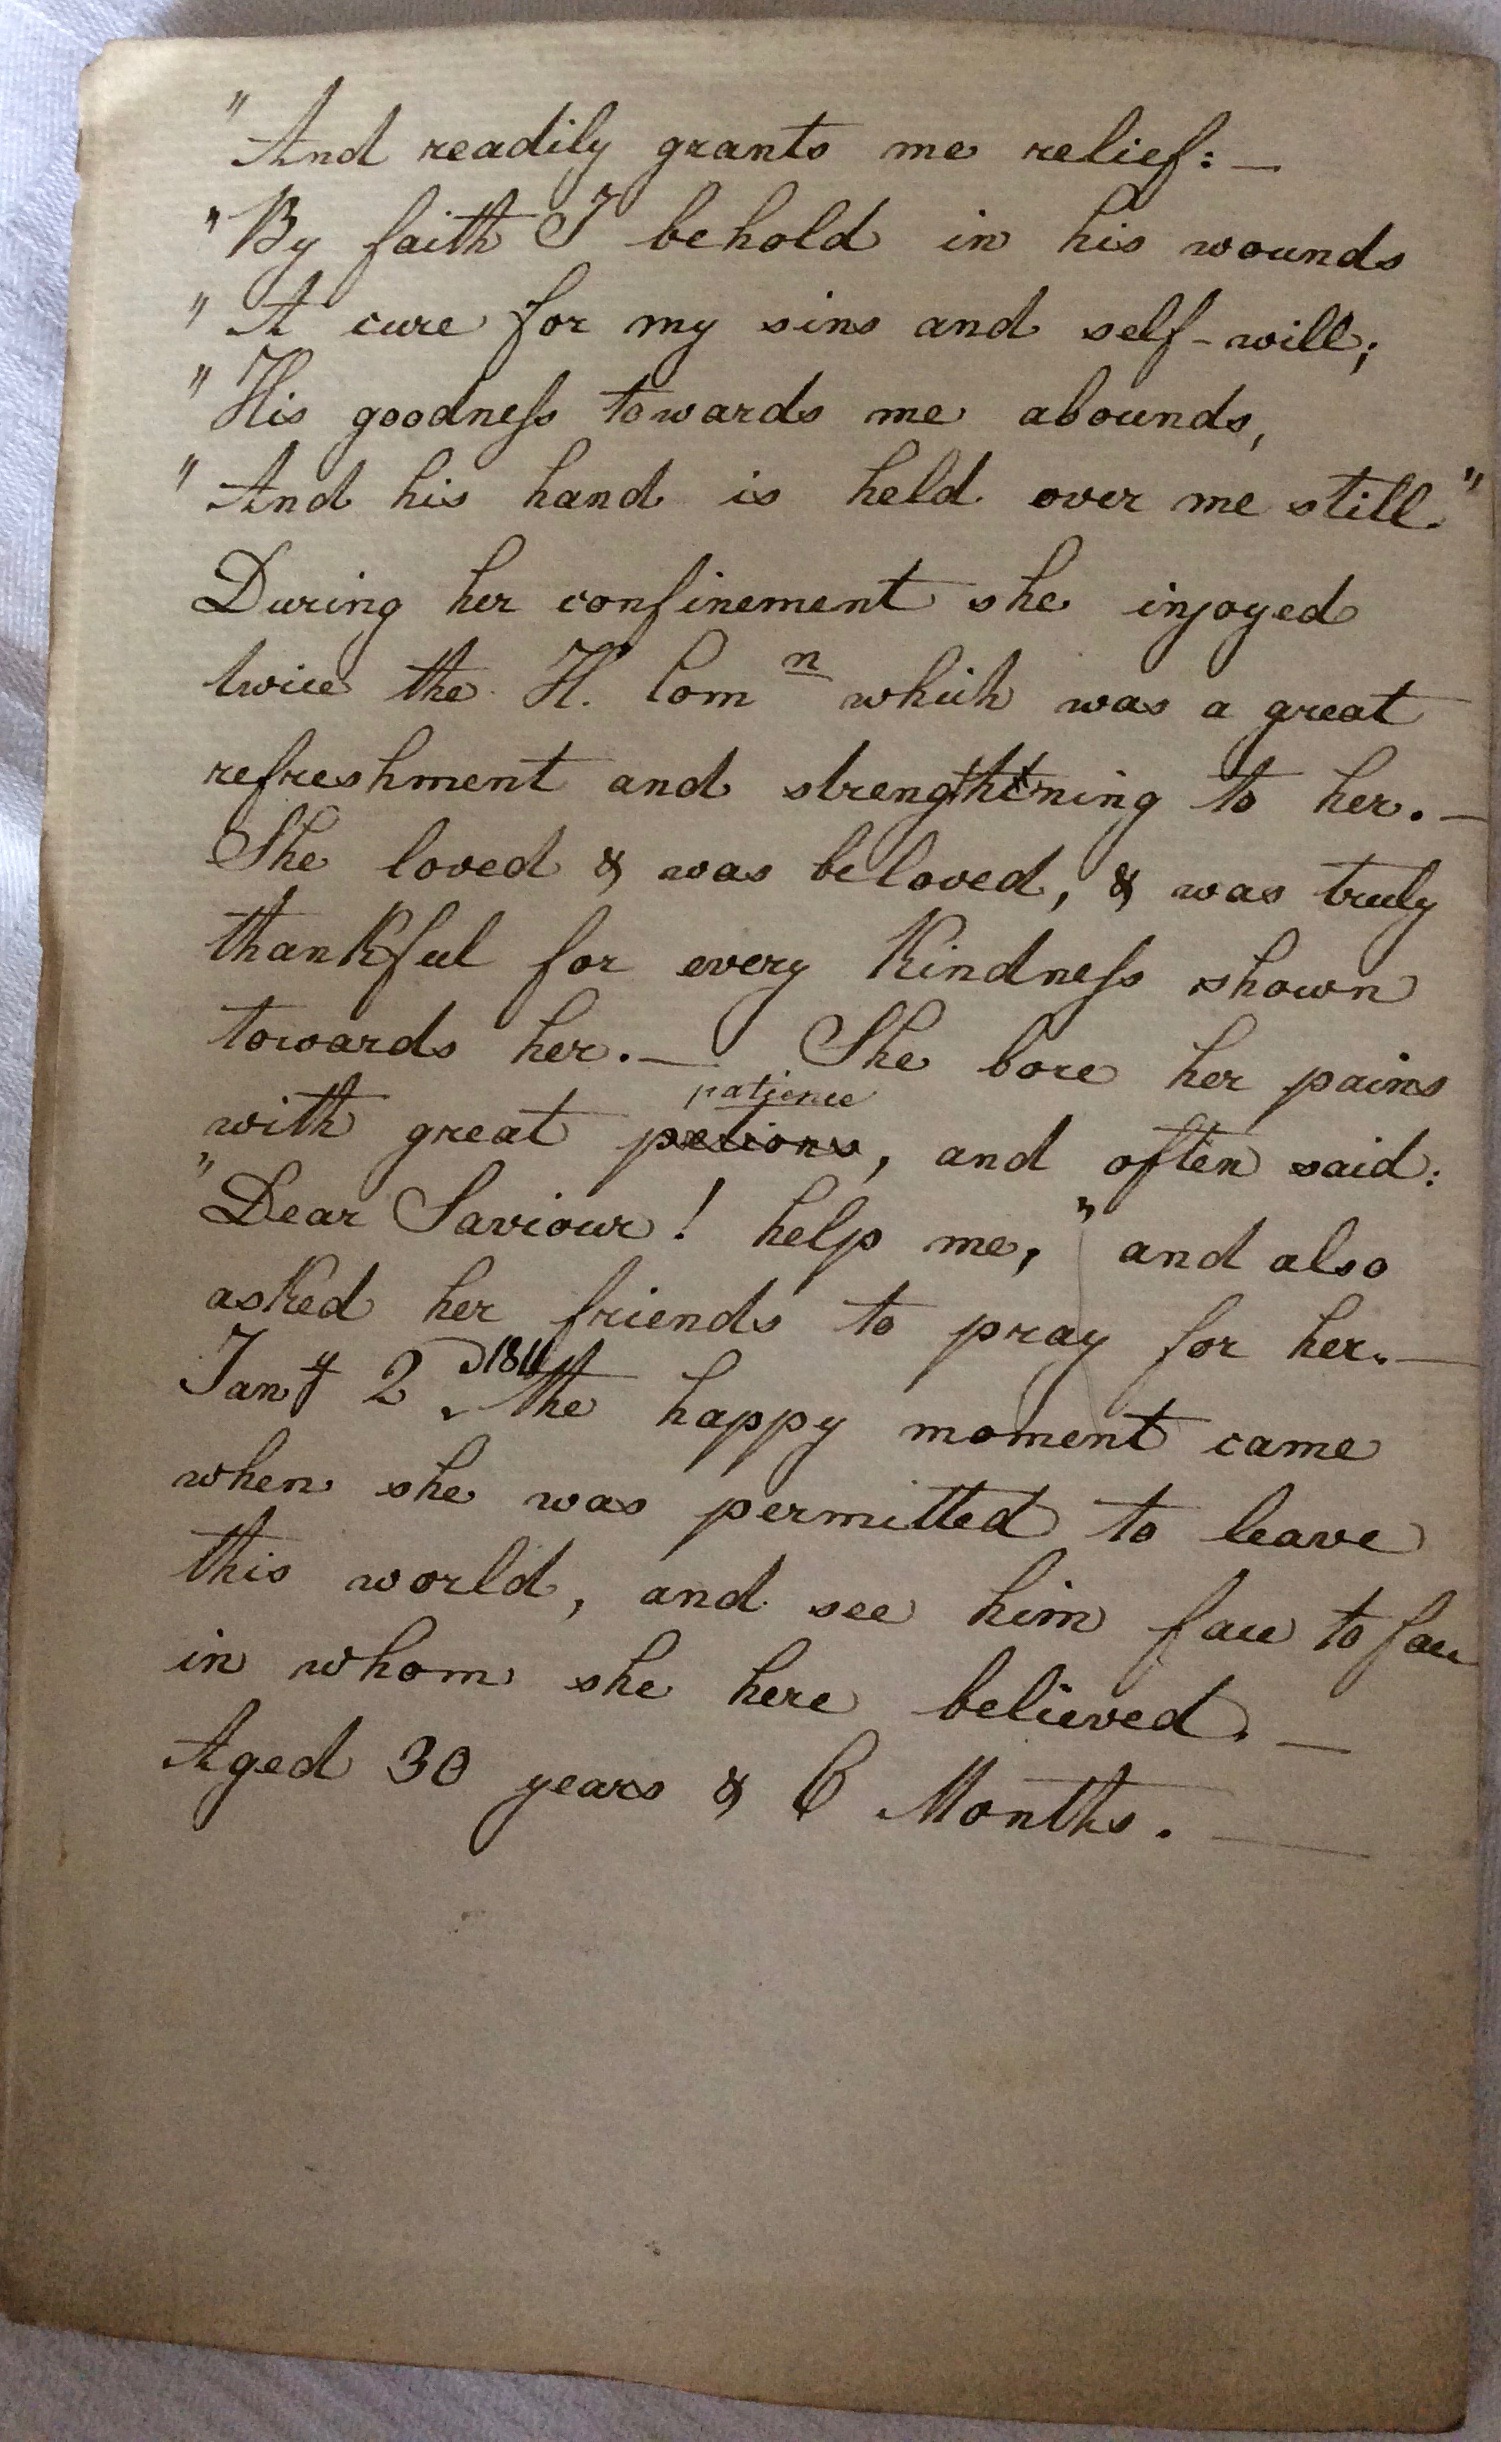 "And readily grants me relief: —
"By faith I behold in his wounds
"A cure for my sins and self-will;
"His goodneſs towards me abounds,
"And his hand is held over me still."
During her confinement she injoyed
twice the H. Comn which was a great
refreshment and strengthening to her. —
She loved & was beloved, & was truly
thankful for every kindneſs shown
towards her. — She bore her pains
patience
with great petions, and often said:
"Dear Saviour! help me," and also
asked her friends to pray for her. —
Jany 2d 1811 the happy moment came
when she was permitted to leave
this world, and see him face to face
in whom she here believed. —
Aged 30 years & 6 Months. —